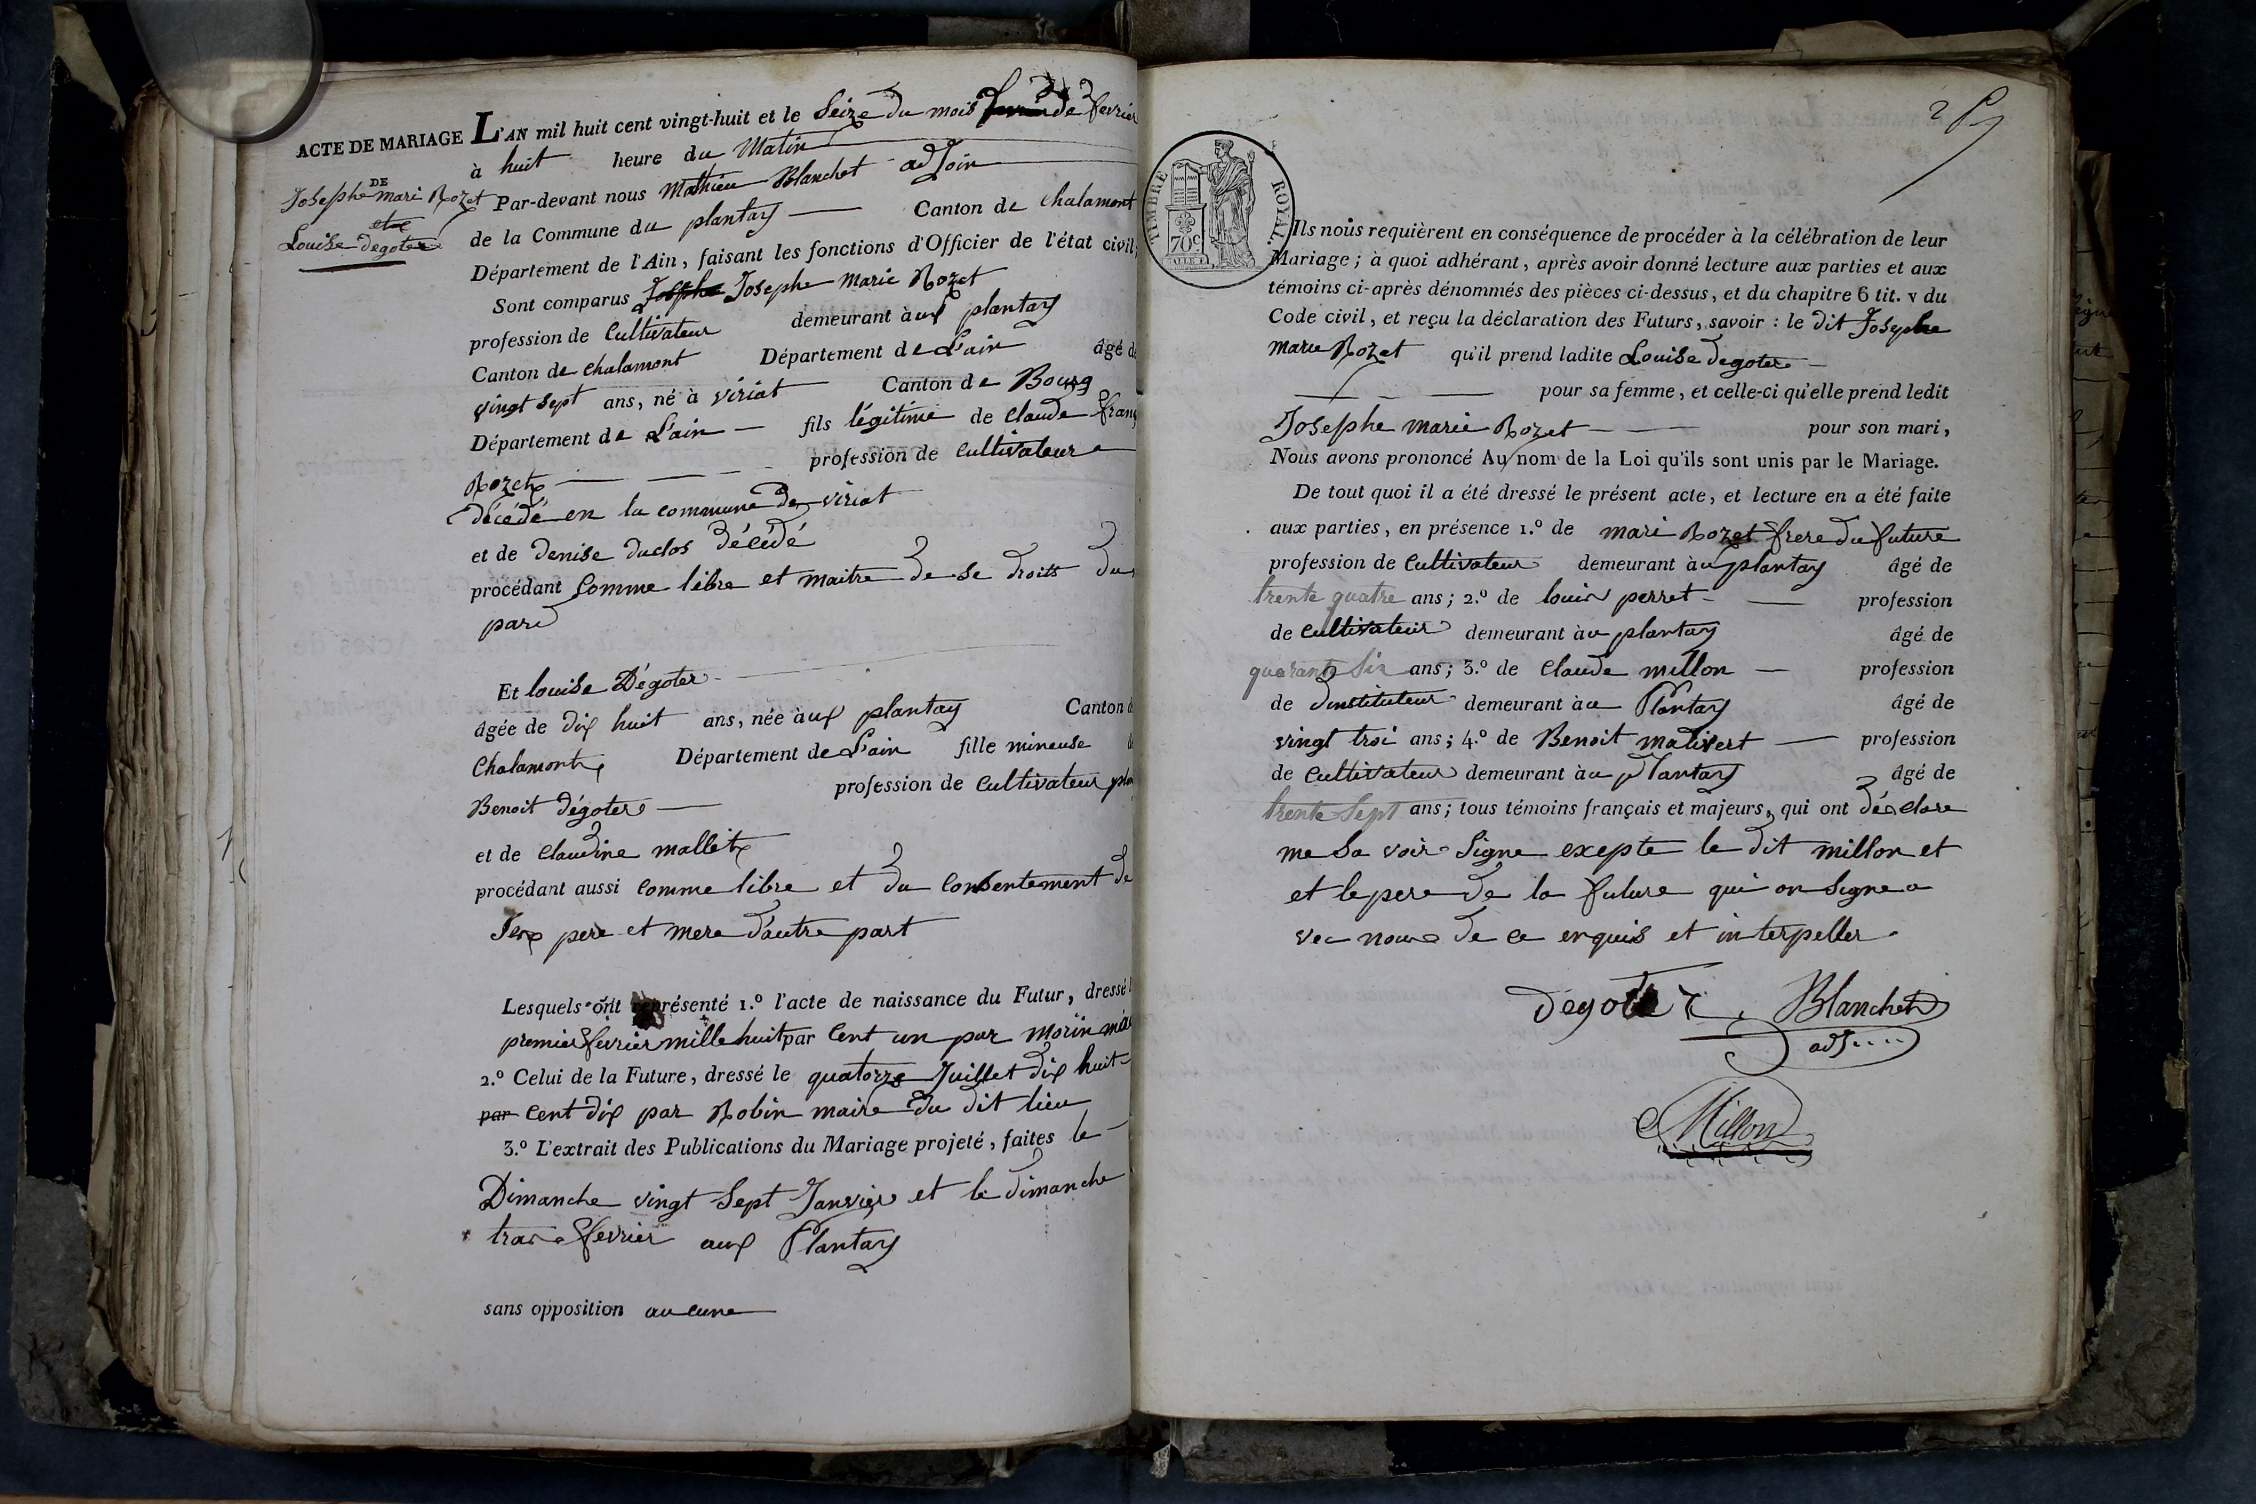 ACTE DE MARIAGE L'AN mil huit cent vingt-huit et le Seize du mois de fevrier
à huit heure du Matin
DE
Josephe mari Rozet
et
Louise degoter
Par-devant nous Mathieu Blanchet adJoin
de la Commune du plantay Canton de chalamont
Département de l'Ain, faisant les fonctions d'Officier de l'état civil;
Sont comparus Josephe Josephe Marie Rozet
profession de Cultivateur demeurant àux plantay
Canton de chalamont Département de L'ain âgé de
vingt sept ans, né à viriat Canton de Bourg
Département de L'ain fils légitime de Claude franç
Rozet profession de Cultivateur
décédé en la commune de viriat
et de Denise duclos décédé
procédant Comme libre et maitre de se droits du
pare
Et louise Dégoter
âgée de dix huit ans, née àux plantay Canton d
Chalamont Département de L'ain fille mineuse d
Benoit dégoter profession de Cultivateur
et de Claudine mallet
procédant aussi comme libre et du consentement de
Ses pere et mere d'autre part
Lesquels ont représenté 1.º l'acte de naissance du Futur, dressé l
premier fevrier mille huit par Cent un par morin
2.º Celui de la Future, dressé le quatorze Juillet dix huit
par Cent dix par Robin maire du dit lieu
3.º L'extrait des Publications du Mariage projeté, faites le
Dimanche vingt Sept Janvier et le dimanche
fevrier aux Plantay
sans opposition aucune
TIMBRE ROYAL.
70 C
Ils nous requièrent en conséquence de procéder à la célébration de leur
Mariage; à quoi adhérant, après avoir donné lecture aux parties et aux
témoins ci-après dénommés des pièces ci-dessus, et du chapitre 6 tit. v du
Code civil, et reçu la déclaration des Futurs, savoir : le dit Josephe
marie Rozet qu'il prend ladite Louise degoter
pour sa femme, et celle-ci qu'elle prend ledit
Josephe marie Rozet pour son mari,
Nous avons prononcé Au nom de la Loi qu'ils sont unis par le Mariage.
De tout quoi il a été dressé le présent acte, et lecture en a été faite
aux parties, en présence 1.º de mari Rozet frere du future
profession de Cultivateur demeurant àu plantay âgé de
trente quatre ans; 2.º de louis perret profession
de Cultivateur demeurant àu plantay âgé de
quarante Six ans; 3.º de Claude millon profession
de Dinstituteur demeurant àu Plantay âgé de
vingt troi ans; 4.º de Benoit malivert profession
de Cultivateur demeurant àu plantay âgé de
trente Sept ans; tous témoins français et majeurs, qui ont déclare
ne Sa voir Signe exepte le dit millon et
et le pere de la future qui on Signe a
vec nous de ce enquis et interpeller
degoter Blanchet
adj
Millon